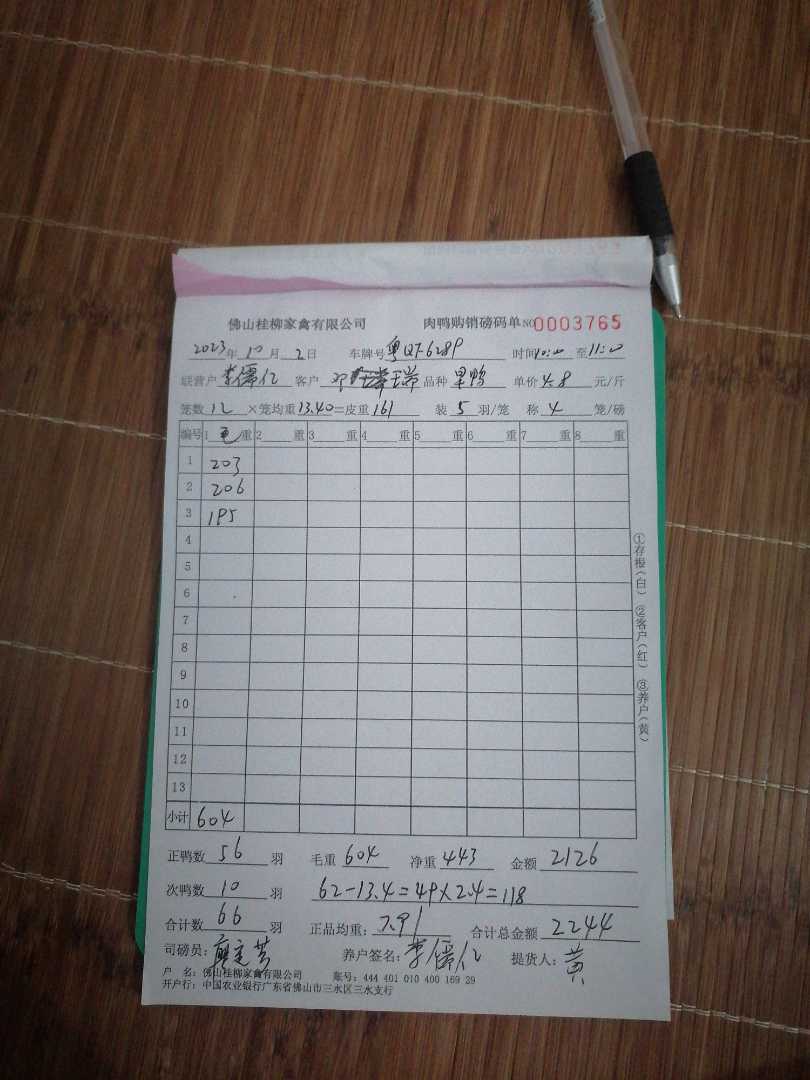 佛山桂柳家禽有限公司 肉鸭购销磅码单 NO 0003765
2023年10月2日 车牌号粤QT6289 时间10:00至11:00
联营户李儒亿 客户邓 瑞 品种黑鸭 单价4.8元/斤
笼数12×笼均重13.40=皮重161 装5羽/笼 称4笼/磅
编号 1毛重 2重 3重 4重 5重 6重 7重 8重
1 203
2 206
3 195
4
5
6
7
8
9
10
11
12
13
小计 604
正鸭数56羽 毛重604 净重443 金额2126
次鸭数10羽 62-13.4=49×2.4=118
合计数66羽 正品均重:7.91 合计总金额2244
司磅员: 养户签名:李儒亿 提货人:黄
户 名:佛山桂柳家禽有限公司 账号:444 401 010 400 169 29
开户行:中国农业银行广东省佛山市三水区三水支行
①存根(白) ②客户(红) ③养户(黄)